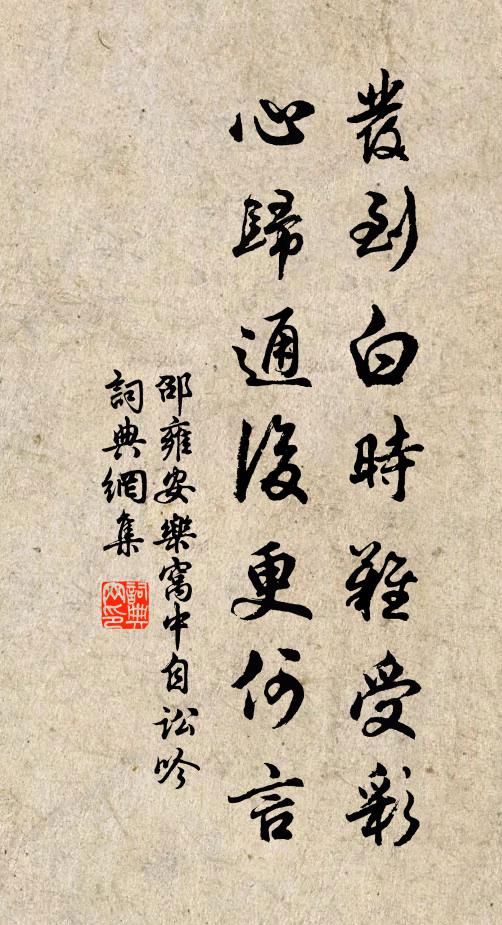 發到白時難受彩
心歸通後更何言
邵雍安樂窩中自訟吟
詞典網集
詞典網印